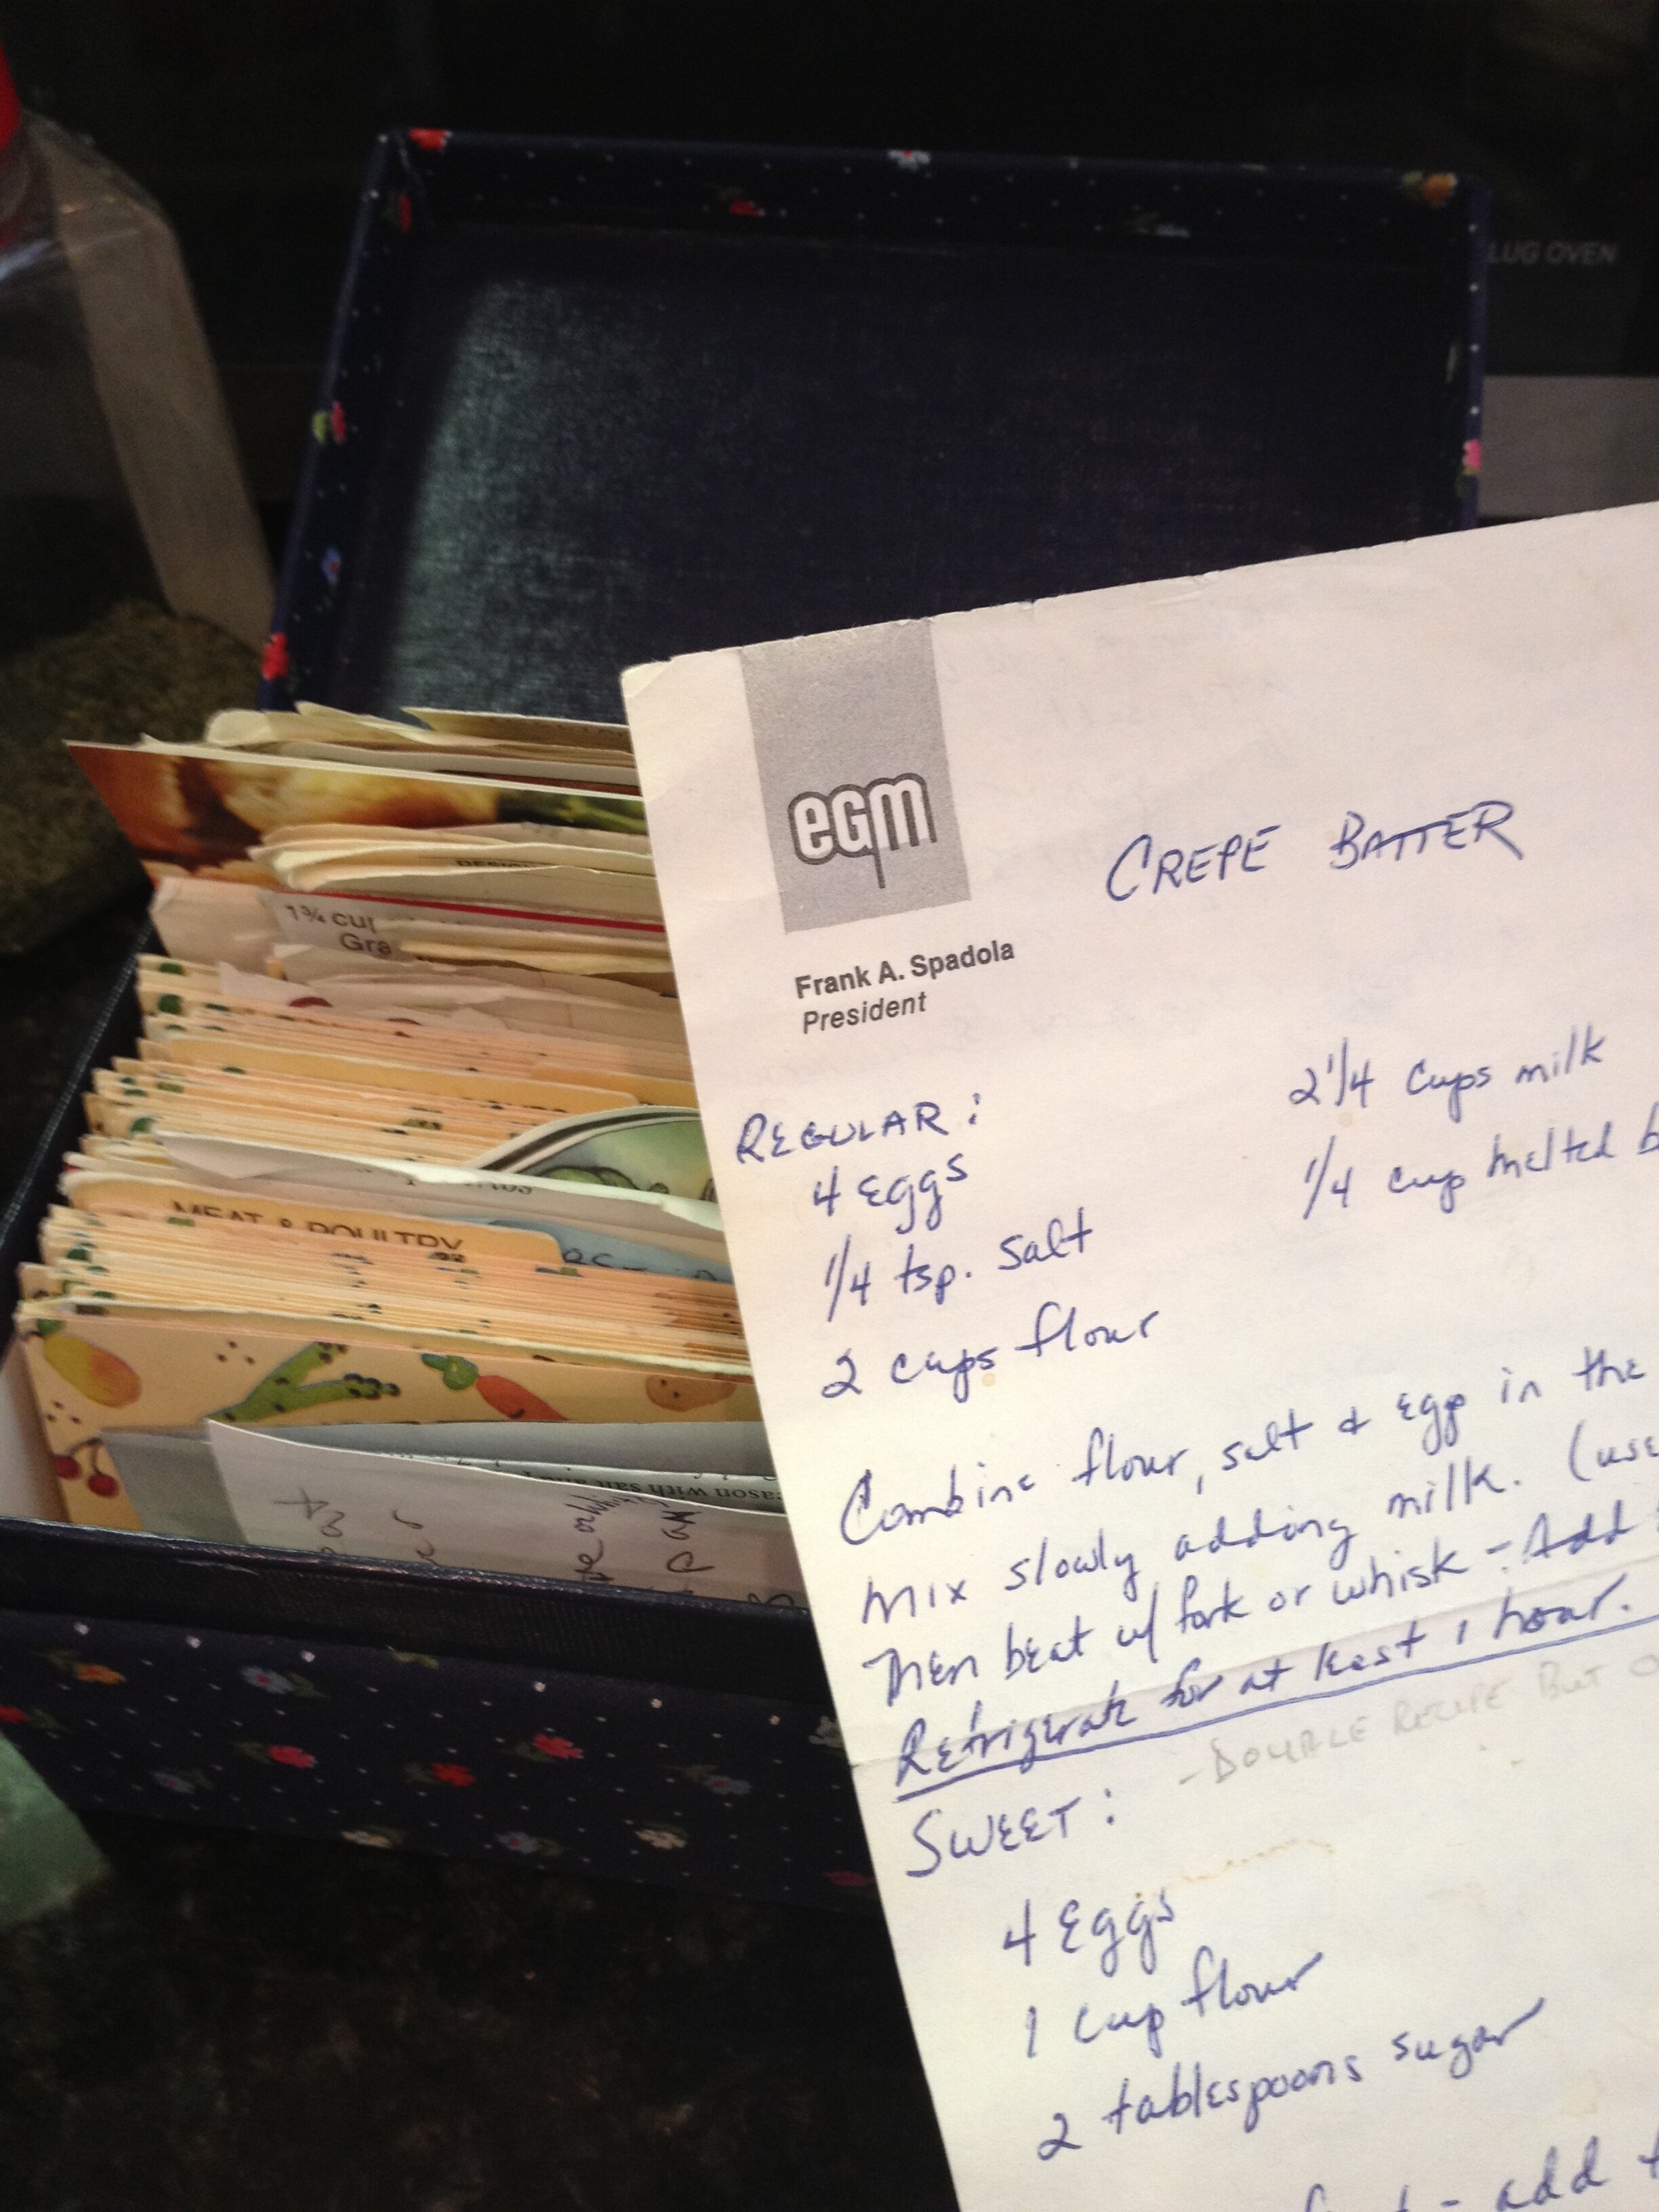 LUG OVEN
egm
CREPE BATTER
Frank A. Spadola
President
REGULAR:
4 Eggs
1/4 tsp. salt
2 cups flour
2 1/4 cups milk
1/4 cup melted b
Combine flour, salt & egg in the
Mix slowly adding milk. (use
Then beat w/ fork or whisk - Add
Refrigerate for at least 1 hour.
- DOUBLE RECIPE BUT O
SWEET:
4 Eggs
1 cup flour
2 tablespoons sugar
- add
1¾ cup
Gra
MEAT & POULTRY
eason with salt and